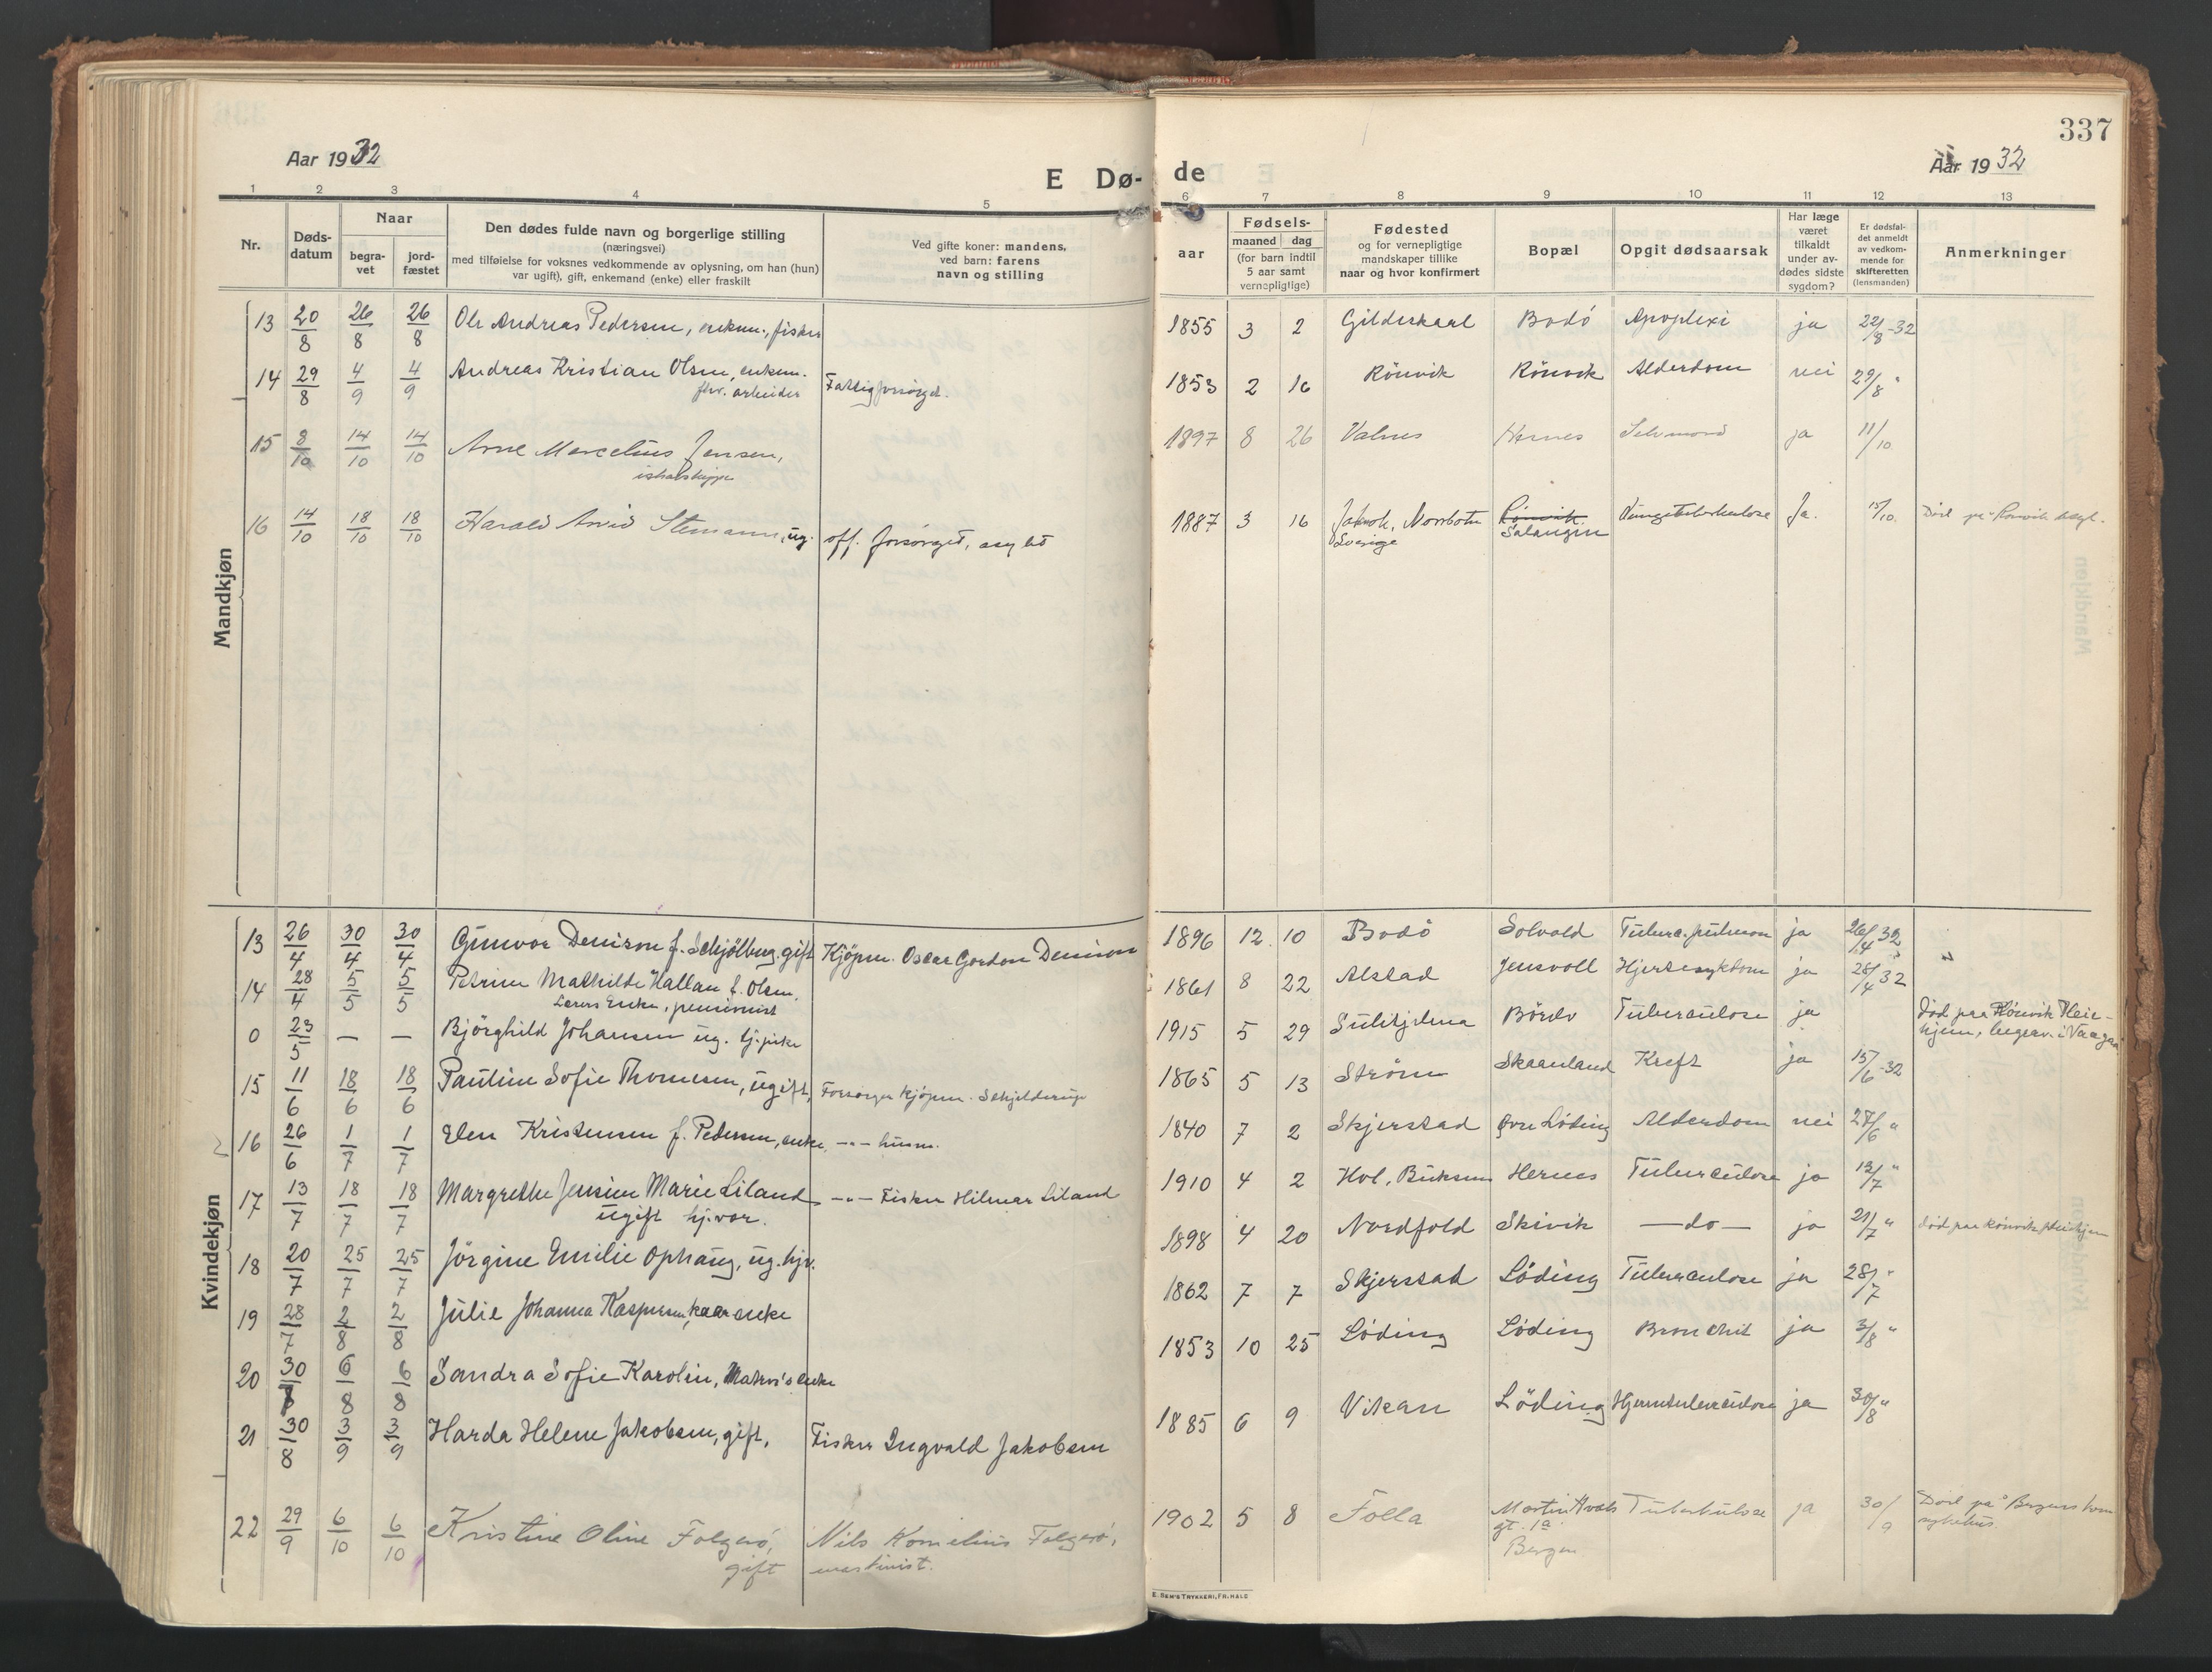 337
Aar 1932
E Dø- de
Aar 1932
1 2 3 4 5 6 7 8 9 10 11 12 13
Nr.
Døds-
datum
Naar
begra-
vet
jord-
fæstet
Den dødes fulde navn og borgerlige stilling
(næringsvei)
med tilføielse for voksnes vedkommende av oplysning, om han (hun)
var ugift), gift, enkemand (enke) eller fraskilt
Ved gifte koner: mandens,
ved barn: farens
navn og stilling
aar
Fødsels-
maaned dag
(for barn indtil
5 aar samt
vernepligtige)
Fødested
og for vernepligtige
mandskaper tillike
naar og hvor konfirmert
Bopæl
Opgit dødsaarsak
Har læge
været
tilkaldt
under av-
dødes sidste
sygdom?
Er dødsfal-
det anmeldt
av vedkom-
mende for
skifteretten
(lensmanden)
Anmerkninger
Mandkjøn
13 20/8 26/8 26/8 Ole Andreas Pedersen, enkem., fisker 1855 3 2 Gildeskaal Bodó Apoplexi ja 22/8-32
14 29/8 4/9 4/9 Andreas Kristian Olsen, enkem. Fattigforsörget. 1853 2 16 Rönvik Rönvik Alderdom nei 29/8 "
fhv. arbeider
15 8/10 14/10 14/10 Arne Marcelius Jensen, 1897 8 26 Valnes Hernes Selvmord ja 11/10
16 14/10 18/10 18/10 Harald Arvid Stemann, ug. off. forsørget, asyl 1887 3 16 Jakob, Norrbotn Rönvik Lungetuberkulose Ja. 15/10. Død på Rønvik asyl.
Sverige Salangen
Kvindekjøn
13 26/4 30/4 30/4 Gunvor Denison f. Schjölberg, gift Kjöpm. Oscar Gordon Denison 1896 12 10 Bodö Solvold Tuberc. pulmon ja 26/4 32
14 28/4 5/5 5/5 Petrine Mathilde Hallan f. Olsen. 1861 8 22 Alstad Jensvoll Hjertesykdom ja 28/4 32
Lærers Enke, pensionist
0 23/5 — — Björghild Johansen ug. tj.pike 1915 5 29 Sulitjelma Tuberculose ja Död paa Rönvik Pleie-
hjem, begrav. i
15 11/6 18/6 18/6 Pauline Sofie Thomesen, ugift, Forsörger Kjöpm. Schjelderup 1865 5 13 Ström Skaanland Kreft ja 15/6-32
16 26/6 1/7 1/7 Elen Kristensen f. Pedersen, enke, -"- husm. 1840 7 2 Skjerstad Øvre Löding Alderdom nei 27/6 "
17 13/7 18/7 18/7 Margrethe Jensine Marie Liland -"- Fisker Hilmar Liland 1910 4 2 Hol, Buksnes Hernes Tuberculose ja 13/7 "
ugift hj.vær.
18 20/7 25/7 25/7 Jörgine Emilie Ophaug, ug. hjv. 1898 4 20 Nordfold Skivik —do— ja 21/7 " död paa Rönvik pleiehjem
19 28/7 2/8 2/8 Julie Johanna Kaspersen, kaarenke 1862 7 7 Skjerstad Löding Tuberculose ja 28/7 "
20 30/7 6/8 6/8 Sandra Sofie Karolin, enke 1853 10 25 Löding Löding Bronchit ja 3/8 "
21 30/8 3/9 3/9 Harda Helene Jakobsen, gift, Fisker Ingvald Jakobsen 1885 6 9 Vikan Löding Hjernetuberculose ja 30/8 "
22 29/9 6/10 6/10 Kristine Oline Folgerö, Nils Kornelius Folgerö, 1902 5 8 Folla Martin Tuberkulose ja 30/9 Død på Bergens kom
gift maskinist. gt. 1a sykehus.
Bergen
E. SEM'S TRYKKERI, FR.HALD